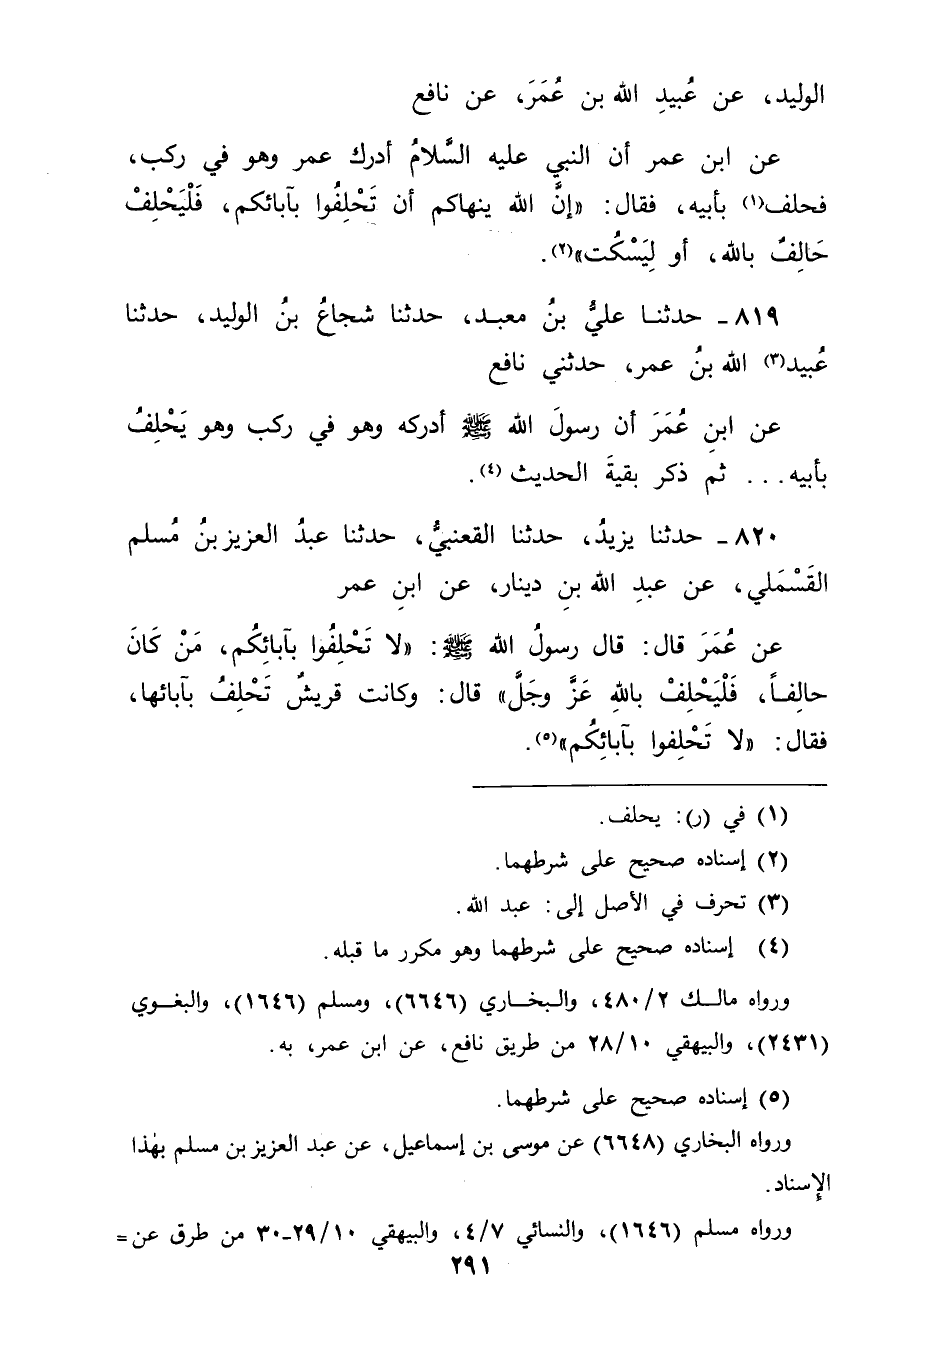 الوليد، عن عُبيدِ الله بن عُمَرَ، عن نافع
عن ابن عمر أن النبي عليه السَّلامُ أدرك عمر وهو في ركب،
فحلف(١) بأبيه، فقال: «إنَّ الله ينهاكم أن تَحْلِفُوا بآبائكم، فَلْيَحْلِفْ
حَالِفٌ بالله، أو لِيَسْكُت»(٢).
٨١٩ـ حدثنـا عليُّ بنُ معبـد، حدثنا شجاعُ بنُ الوليد، حدثنا
عُبيد(٣) الله بنُ عمر، حدثني نافع
عن ابنِ عُمَرَ أن رسولَ الله ﷺ أدركه وهو في ركب وهو يَحْلِفُ
بأبيه... ثم ذكر بقيةَ الحديث(٤).
٨٢٠ـ حدثنا يزيدُ، حدثنا القعنبيُّ، حدثنا عبدُ العزيز بنُ مُسلم
القَسْمَلي، عن عبدِ الله بنِ دينار، عن ابنِ عمر
عن عُمَرَ قال: قال رسولُ الله ﷺ: «لا تَحْلِفُوا بآبائِكُم، مَنْ كَانَ
حالِفـاً، فَلْيَحْلِفْ باللهِ عَزَّ وجَلَّ» قال: وكانت قريشٌ تَحْلِفُ بآبائها،
فقال: «لا تَحْلِفوا بآبائِكُم»(٥).
(١) في (ر): يحلف.
(٢) إسناده صحيح على شرطهما.
(٣) تحرف في الأصل إلى: عبد الله.
(٤) إسناده صحيح على شرطهما وهو مكرر ما قبله.
ورواه مالـك ٤٨٠/٢، والبخـاري (٦٦٤٦)، ومسلم (١٦٤٦)، والبغـوي
(٢٤٣١)، والبيهقي ٢٨/١٠ من طريق نافع، عن ابن عمر، به.
(٥) إسناده صحيح على شرطهما.
ورواه البخاري (٦٦٤٨) عن موسى بن إسماعيل، عن عبد العزيز بن مسلم بهٰذا
الإِسناد.
ورواه مسلم (١٦٤٦)، والنسائي ٤/٧، والبيهقي ٢٩/١٠ـ٣٠ من طرق عن=
٢٩١